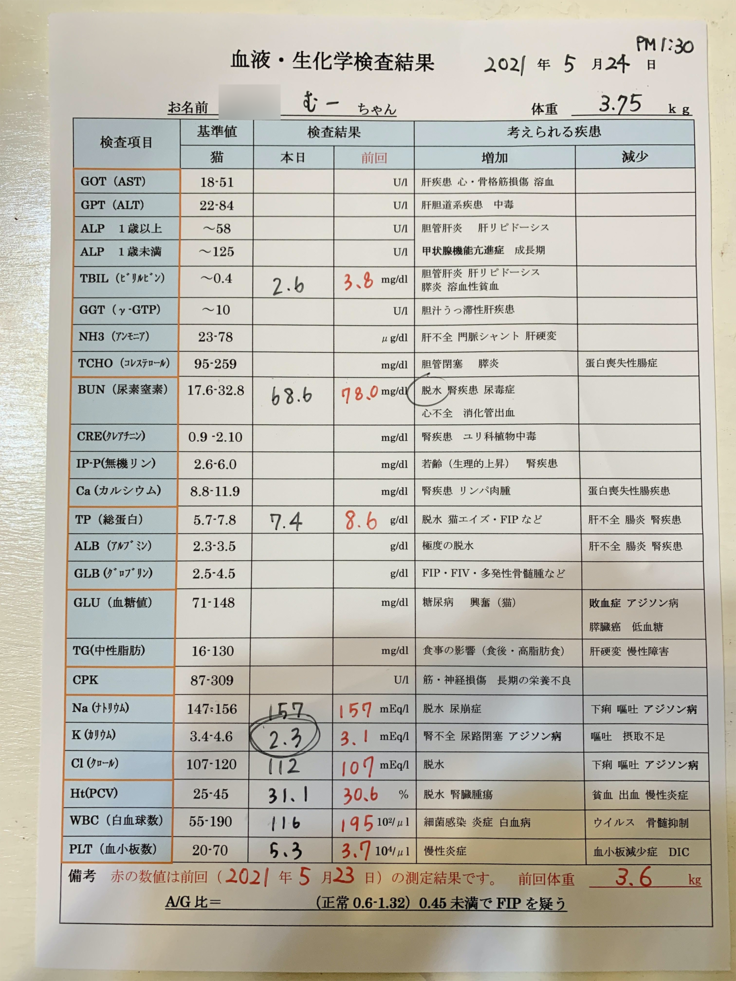 PM1:30
血液・生化学検査結果 2021 年 5 月 24 日
お名前 むー ちゃん 体重 3.75 kg
検査項目 基準値 検査結果 考えられる疾患
猫 本日 前回 増加 減少
GOT (AST) 18-51 U/l 肝疾患 心・骨格筋損傷 溶血
GPT (ALT) 22-84 U/l 肝胆道系疾患 中毒
ALP 1歳以上 ～58 U/l 胆管肝炎 肝リピドーシス
ALP 1歳未満 ～125 U/l 甲状腺機能亢進症 成長期
TBIL (ﾋﾞﾘﾙﾋﾞﾝ) ～0.4 2.6 3.8 mg/dl 胆管肝炎 肝リピドーシス
膵炎 溶血性貧血
GGT (γ-GTP) ～10 U/l 胆汁うっ滞性肝疾患
NH3 (ｱﾝﾓﾆｱ) 23-78 μg/dl 肝不全 門脈シャント 肝硬変
TCHO (ｺﾚｽﾃﾛｰﾙ) 95-259 mg/dl 胆管閉塞 膵炎 蛋白喪失性腸症
BUN (尿素窒素) 17.6-32.8 68.6 78.0 mg/dl 脱水 腎疾患 尿毒症
心不全 消化管出血
CRE(ｸﾚｱﾁﾆﾝ) 0.9 -2.10 mg/dl 腎疾患 ユリ科植物中毒
IP-P(無機リン) 2.6-6.0 mg/dl 若齢（生理的上昇） 腎疾患
Ca (カルシウム) 8.8-11.9 mg/dl 腎疾患 リンパ肉腫 蛋白喪失性腸疾患
TP (総蛋白) 5.7-7.8 7.4 8.6 g/dl 脱水 猫エイズ・FIP など 肝不全 腸炎 腎疾患
ALB (ｱﾙﾌﾞﾐﾝ) 2.3-3.5 g/dl 極度の脱水 肝不全 腸炎 腎疾患
GLB (ｸﾞﾛﾌﾞﾘﾝ) 2.5-4.5 g/dl FIP・FIV・多発性骨髄腫など
GLU (血糖値) 71-148 mg/dl 糖尿病 興奮（猫） 敗血症 アジソン病
膵臓癌 低血糖
TG(中性脂肪) 16-130 mg/dl 食事の影響（食後・高脂肪食） 肝硬変 慢性障害
CPK 87-309 U/l 筋・神経損傷 長期の栄養不良
Na (ﾅﾄﾘｳﾑ) 147-156 157 157 mEq/l 脱水 尿崩症 下痢 嘔吐 アジソン病
K (ｶﾘｳﾑ) 3.4-4.6 2.3 3.1 mEq/l 腎不全 尿路閉塞 アジソン病 嘔吐 摂取不足
Cl (ｸﾛｰﾙ) 107-120 112 107 mEq/l 脱水 下痢 嘔吐 アジソン病
Ht(PCV) 25-45 31.1 30.6 % 脱水 腎臓腫瘍 貧血 出血 慢性炎症
WBC (白血球数) 55-190 116 195 10²/μl 細菌感染 炎症 白血病 ウイルス 骨髄抑制
PLT (血小板数) 20-70 5.3 3.7 10⁴/μl 慢性炎症 血小板減少症 DIC
備考 赤の数値は前回（2021 年 5 月 23 日）の測定結果です。 前回体重 3.6 kg
A/G 比＝ （正常 0.6-1.32）0.45 未満で FIP を疑う